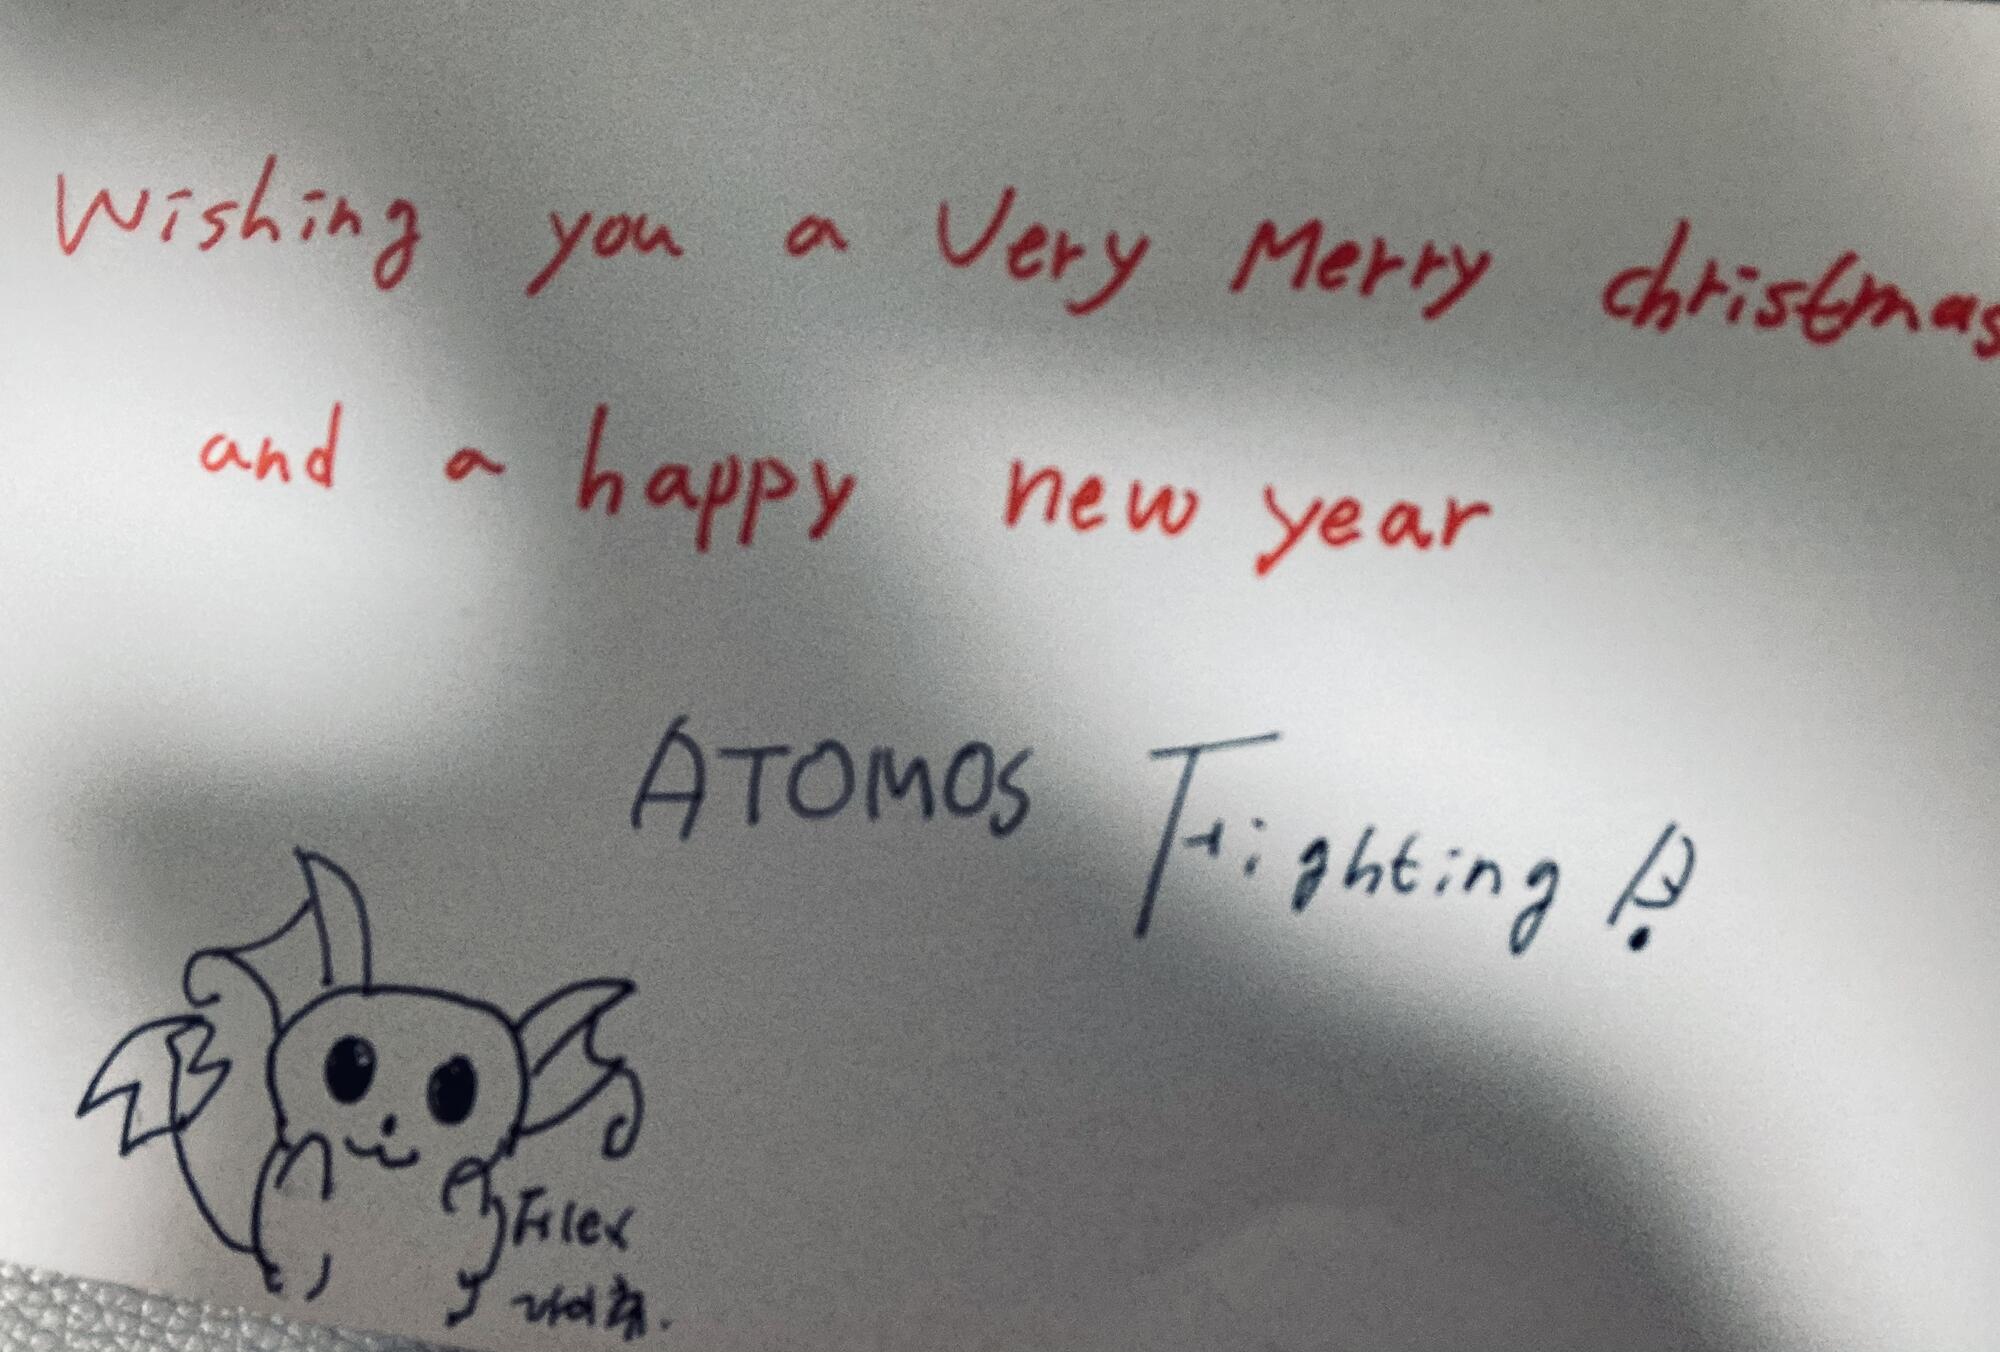 Wishing you a Very Merry christmas
and a happy new year
ATOMOS Fighting !
Filex